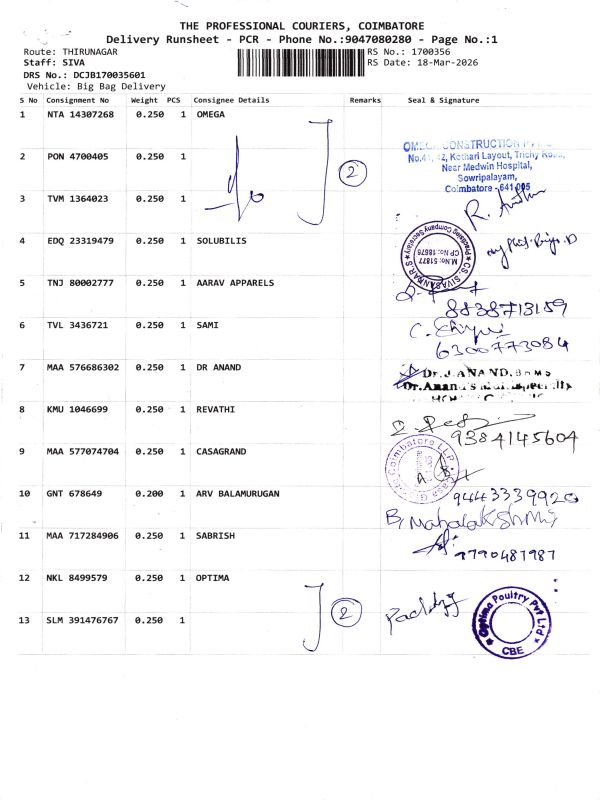 THE PROFESSIONAL COURIERS, COIMBATORE
Delivery Runsheet - PCR - Phone No.:9047080280 - Page No.:1
Route: THIRUNAGAR
RS No.: 1700356
Staff: SIVA
RS Date: 18-Mar-2026
DRS No.: DCJB170035601
Vehicle: Big Bag Delivery
S No Consignment No Weight PCS Consignee Details Remarks Seal & Signature
1 NTA 14307268 0.250 1 OMEGA
OMEGA CONSTRUCTION
No.41, 42, Kothari Layout, Trichy Road,
Near Medwin Hospital,
Sowripalayam,
Coimbatore - 641 005
2 PON 4700405 0.250 1
2
3 TVM 1364023 0.250 1
R.
4 EDQ 23319479 0.250 1 SOLUBILIS
CS. SIVASANKAR.S
Practising Company Secretary
M.No: 51877
CP No: 18676
5 TNJ 80002777 0.250 1 AARAV APPARELS
8838713159
6 TVL 3436721 0.250 1 SAMI
C.
6300773084
7 MAA 576686302 0.250 1 DR ANAND
Dr.J.ANAND.BHMS
Dr.Anand's Multispeciality
8 KMU 1046699 0.250 1 REVATHI
9384145604
9 MAA 577074704 0.250 1 CASAGRAND
Coimbatore LLP
10 GNT 678649 0.200 1 ARV BALAMURUGAN
9443339920
B. Mahalakshmi
11 MAA 717284906 0.250 1 SABRISH
9790487987
12 NKL 8499579 0.250 1 OPTIMA
2
Optima Poultry Pvt Ltd
CBE
13 SLM 391476767 0.250 1